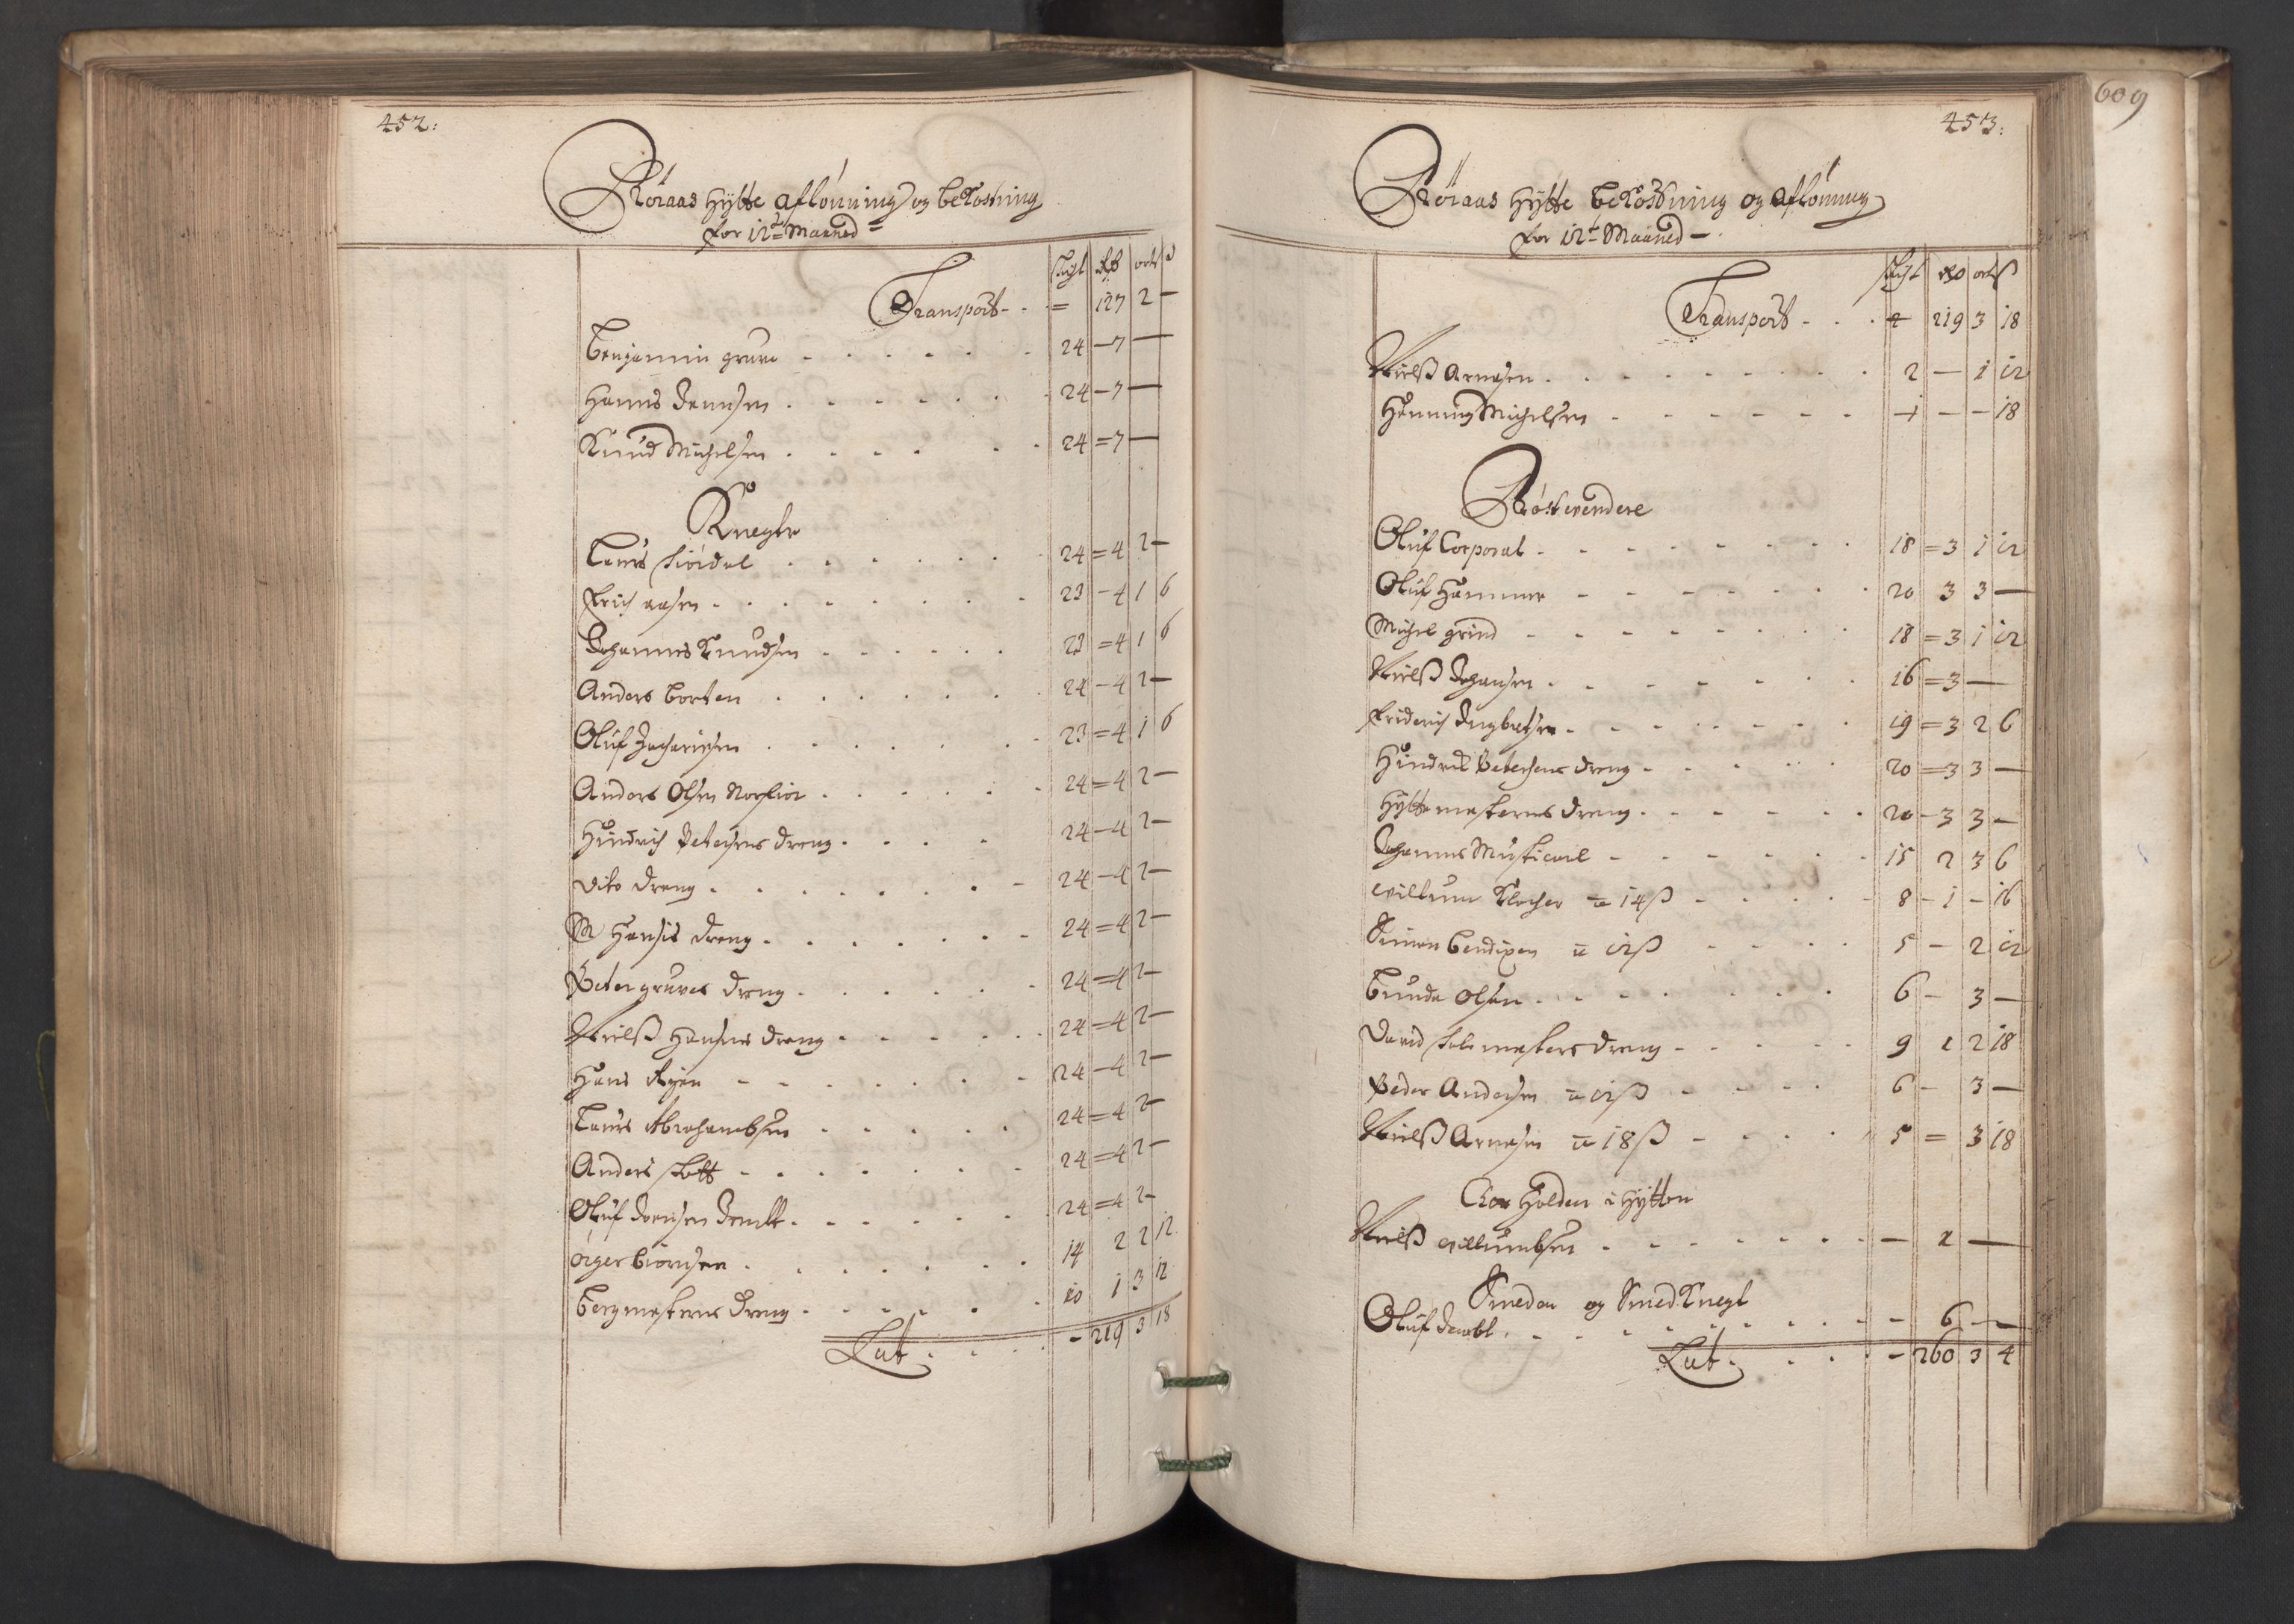 452:
Röraas Hÿtte aflönning og bekostning
for 12te Maaned
skyl rdr ort s
Transport - - = 127 2 —
Benjamin gruve - - - - - - 24 — 7 —
Hanns Jennsen - - - - - - 24 — 7 —
Knud Michelsen - - - - - - 24 = 7 —
Knegte
Laurs Siördal - - - - - - 24 = 4 2 —
Erich aasen - - - - - - 23 — 4 1 6
Johannes Knudsen - - - - - 23 = 4 1 6
Anders Borten - - - - - - 24 — 4 2 —
Oluf Zachariesen - - - - - 23 = 4 1 6
Anders Olsen - - - - - 24 = 4 2 —
Hindrich Petersens dreng - - - - 24 — 4 2 —
Vits dreng - - - - - - 24 — 4 2 —
M Hansis dreng - - - - - - 24 = 4 2 —
Peter gruves dreng - - - - - 24 = 4 2 —
Nielß Hansens dreng - - - - - 24 = 4 2 —
Hans Ryen - - - - - - 24 — 4 2 —
Laurs Abrahambsen - - - - - 24 = 4 2 —
Anders skott - - - - - - 24 = 4 2 —
Oluf Joensen Jemtt - - - - - 24 = 4 2 —
örger Biörnsen - - - - - - 14 2 2 12
Bergmesterens dreng - - - - - 10 1 3 12
Lat - - - - 219 3 18
609
453:
Röraas Hÿtte bekostning og aflönning
for 12te Maaned —
skyl rdr ort ß
Transport - - - 219 3 18
Nielß Arnesen - - - - - - 2 — 1 12
Henning Michelsen - - - - - - 1 — — 18
Röstevendere
Oluf Corporal - - - - - - 18 = 3 1 12
Oluf Hammer - - - - - - 20 3 3 —
Michel grind - - - - - - 18 = 3 1 12
Nielß Johansen - - - - - - 16 = 3 —
Friderich Ingbretsen - - - - - 19 = 3 2 6
Hindrik Petersens dreng - - - - 20 = 3 3 —
Hÿttemesterens dreng - - - - - 20 — 3 3 —
Johannes Musicant - - - - - 15 2 3 6
Willum Klocher a 14 ß - - - - 8 — 1 — 16
Simen Bendixen a 12 ß - - - - 5 — 2 12
Gunde Olsen - - - - - - 6 — 3 —
David skolemesters dreng - - - - 9 1 2 18
Peder Andersen a 12 ß - - - - 6 — 3 —
Nielß Arnesen a 18 ß - - - - 5 = 3 18
Chor Holden i Hÿtten
Nielß Willumbsen - - - - - - — 2 —
Smeden og SmedKnegt
Oluf Jembt - - - - - - — 6 — —
Lat - - - - 260 3 4